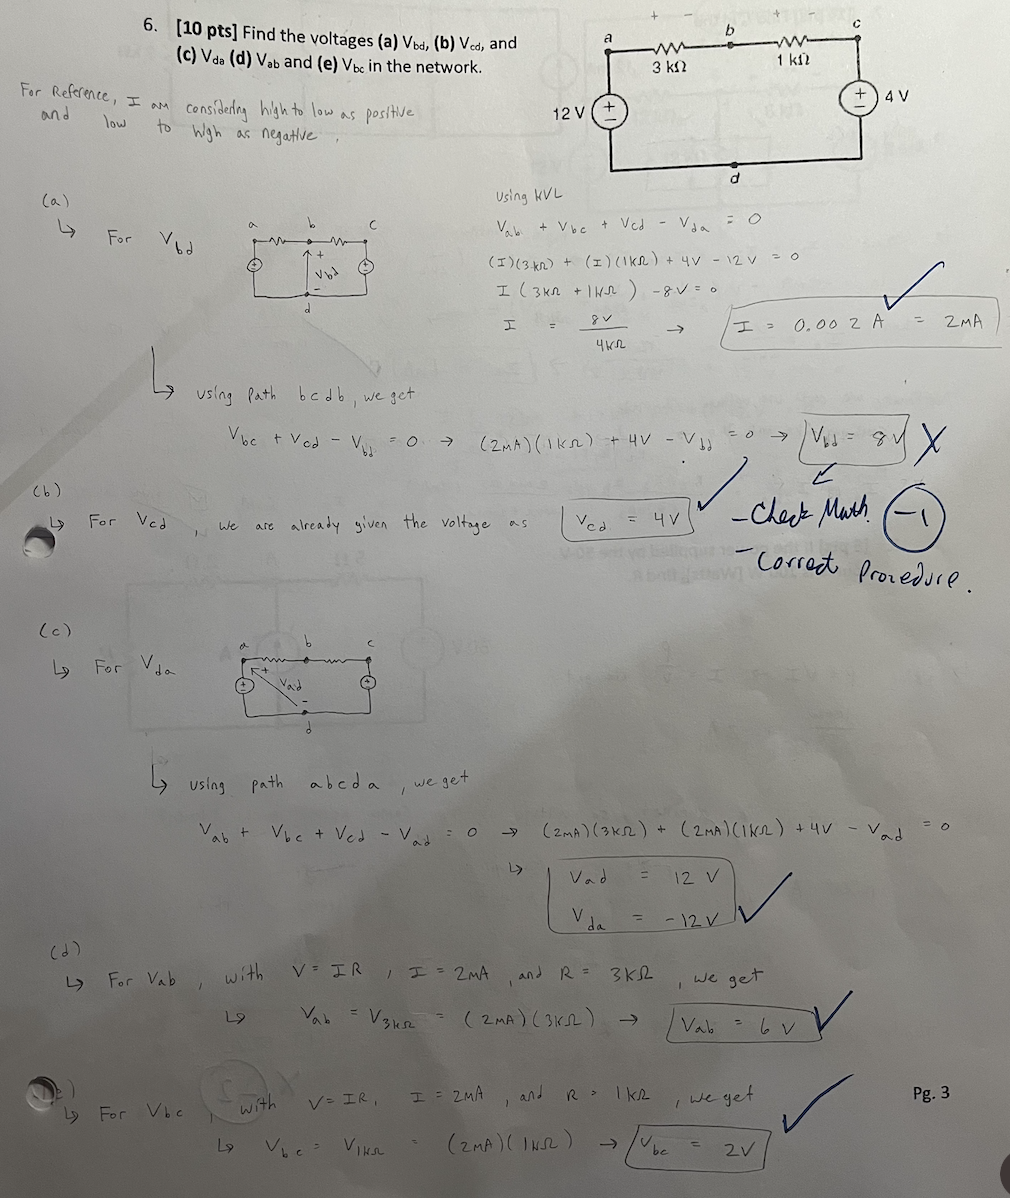 6. [10 pts] Find the voltages (a) Vbd, (b) Vcd, and
(c) Vda (d) Vab and (e) Vbc in the network.
+ - + -
a b c
3 kΩ 1 kΩ
12 V + - + - 4 V
d
For Reference, I am considering high to low as positive
and low to high as negative.
(a)
↳ For Vbd
a b c
+ Vbd -
d
using KVL
Vab + Vbc + Vcd - Vda = 0
(I)(3kΩ) + (I)(1kΩ) + 4V - 12V = 0
I (3kΩ + 1kΩ) - 8V = 0
I = 8V / 4kΩ → I = 0.002 A = 2mA
↳ using path bcdb, we get
Vbc + Vcd - Vbd = 0 → (2mA)(1kΩ) + 4V - Vbd = 0 → Vbd = 8V X
- Check Math. -1
- Correct Procedure.
(b)
↳ For Vcd, we are already given the voltage as Vcd = 4V
(c)
↳ For Vda
a b c
+ Vad -
d
↳ using path abcda, we get
Vab + Vbc + Vcd - Vad = 0 → (2mA)(3kΩ) + (2mA)(1kΩ) + 4V - Vad = 0
↳ Vad = 12 V
Vda = -12 V
(d)
↳ For Vab, with V = IR, I = 2mA, and R = 3kΩ, we get
↳ Vab = V3kΩ = (2mA)(3kΩ) → Vab = 6 V
↳ For Vbc, with V = IR, I = 2mA, and R = 1kΩ, we get
↳ Vbc = V1kΩ = (2mA)(1kΩ) → Vbc = 2V
Pg. 3